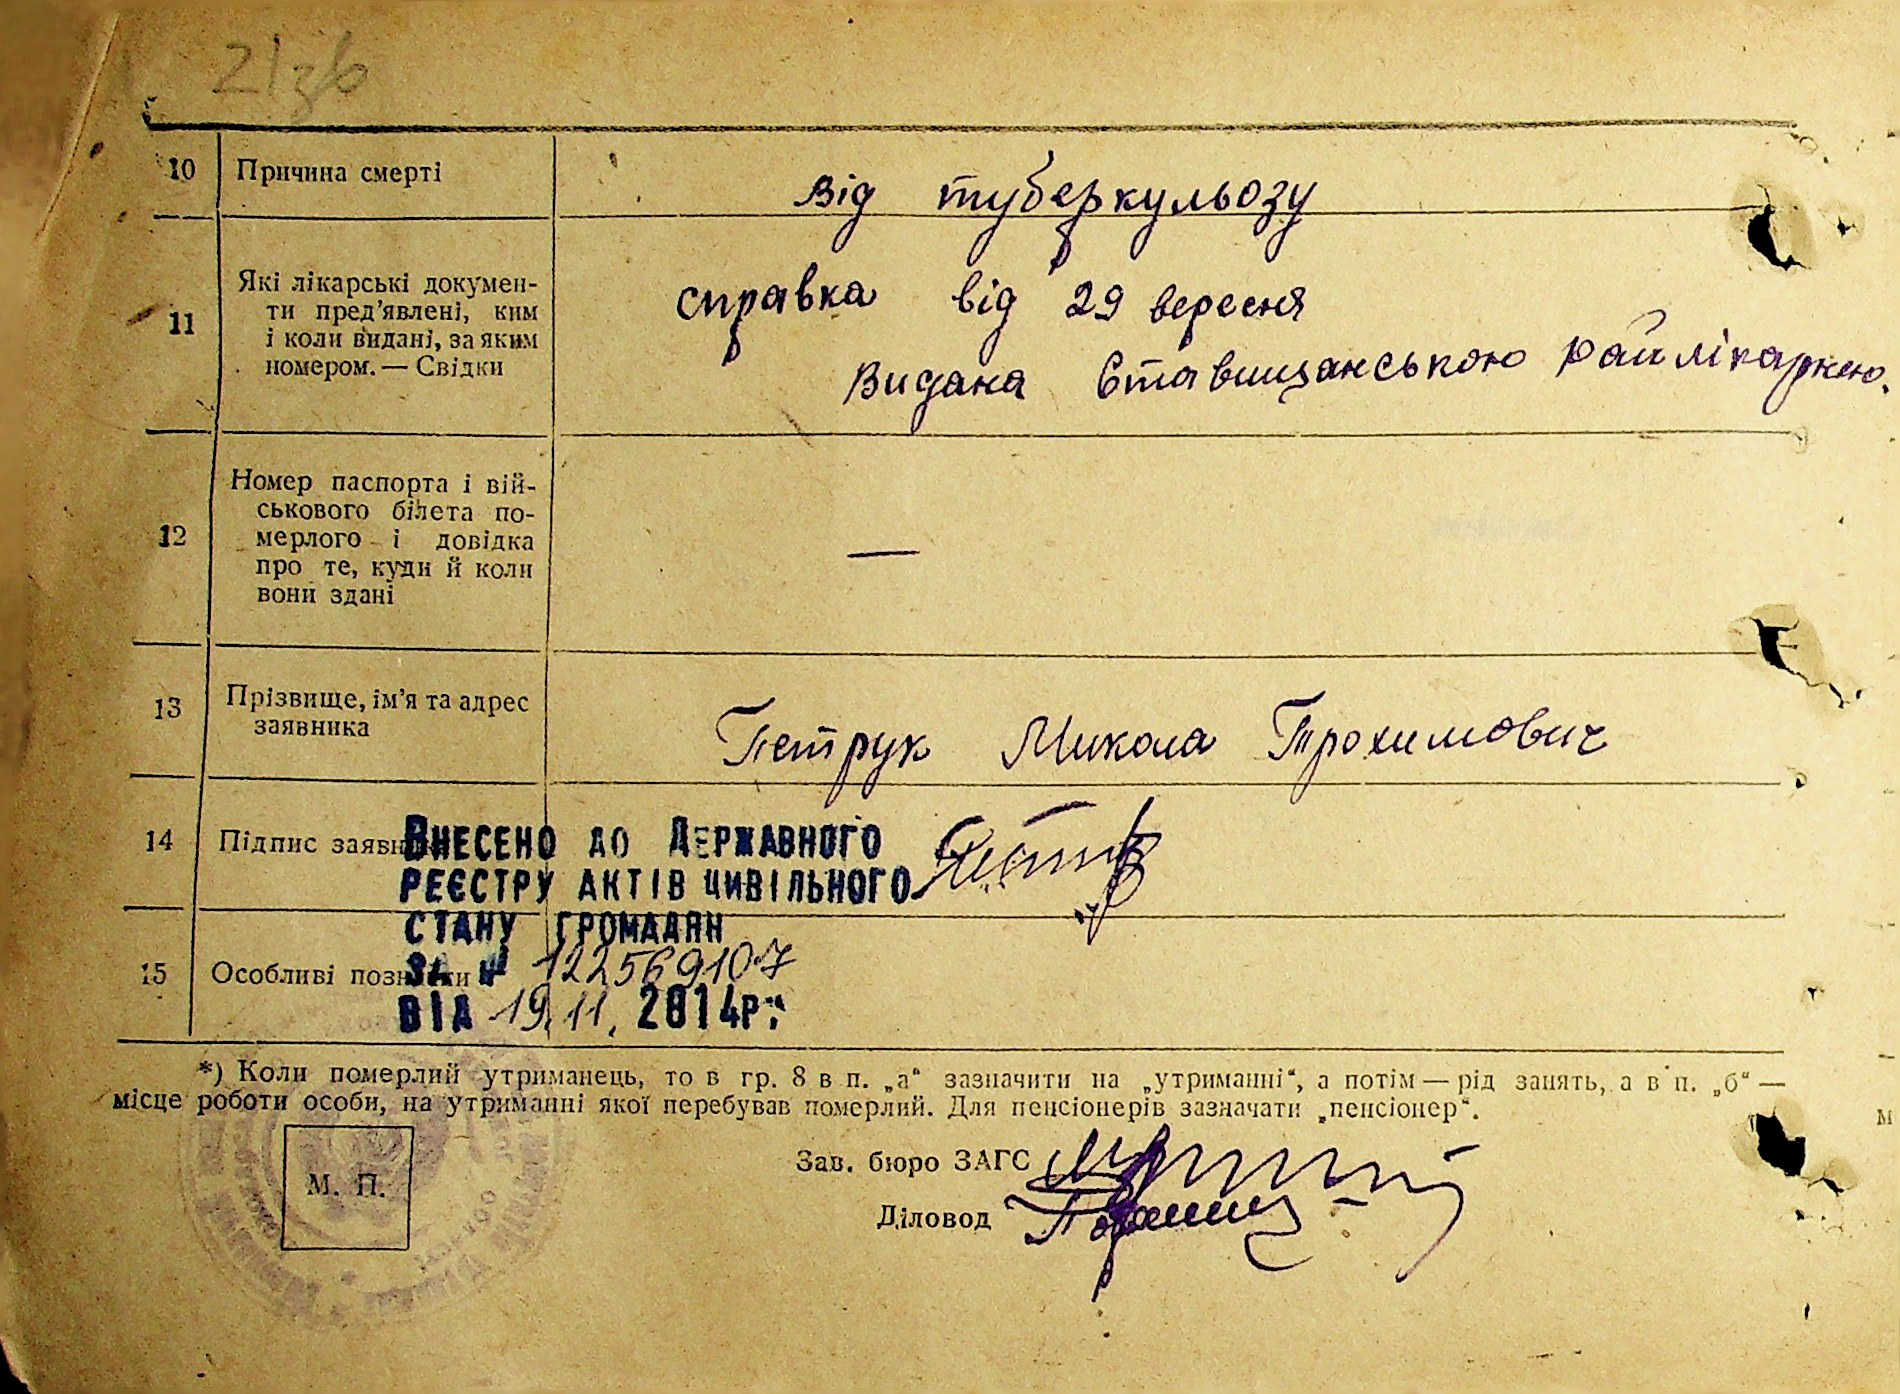 21зв
10 Причина смерті від туберкульозу
11 Які лікарські докумен-
ти пред'явлені, ким
і коли видані, за яким
номером. — Свідки
справка від 29 вересня
Видана Ставищанською райлікарнею.
12 Номер паспорта і вій-
ськового білета по-
мерлого і довідка
про те, куди й коли
вони здані
—
13 Прізвище, ім'я та адрес
заявника
Петрук Микола Трохимович
14 Підпис заявн
ВНЕСЕНО ДО ДЕРЖАВНОГО
РЕЄСТРУ АКТІВ ЦИВІЛЬНОГО
СТАНУ ГРОМАДЯН
15 Особливі познатки
ЗА № 122569107
ВІД 19.11. 2014р.
*) Коли померлий утриманець, то в гр. 8 в п. „а“ зазначити на „утриманні“, а потім — рід занять, а в п. „б“ —
місце роботи особи, на утриманні якої перебував померлий. Для пенсіонерів зазначати „пенсіонер“.
М. П.
Зав. бюро ЗАГС
Діловод